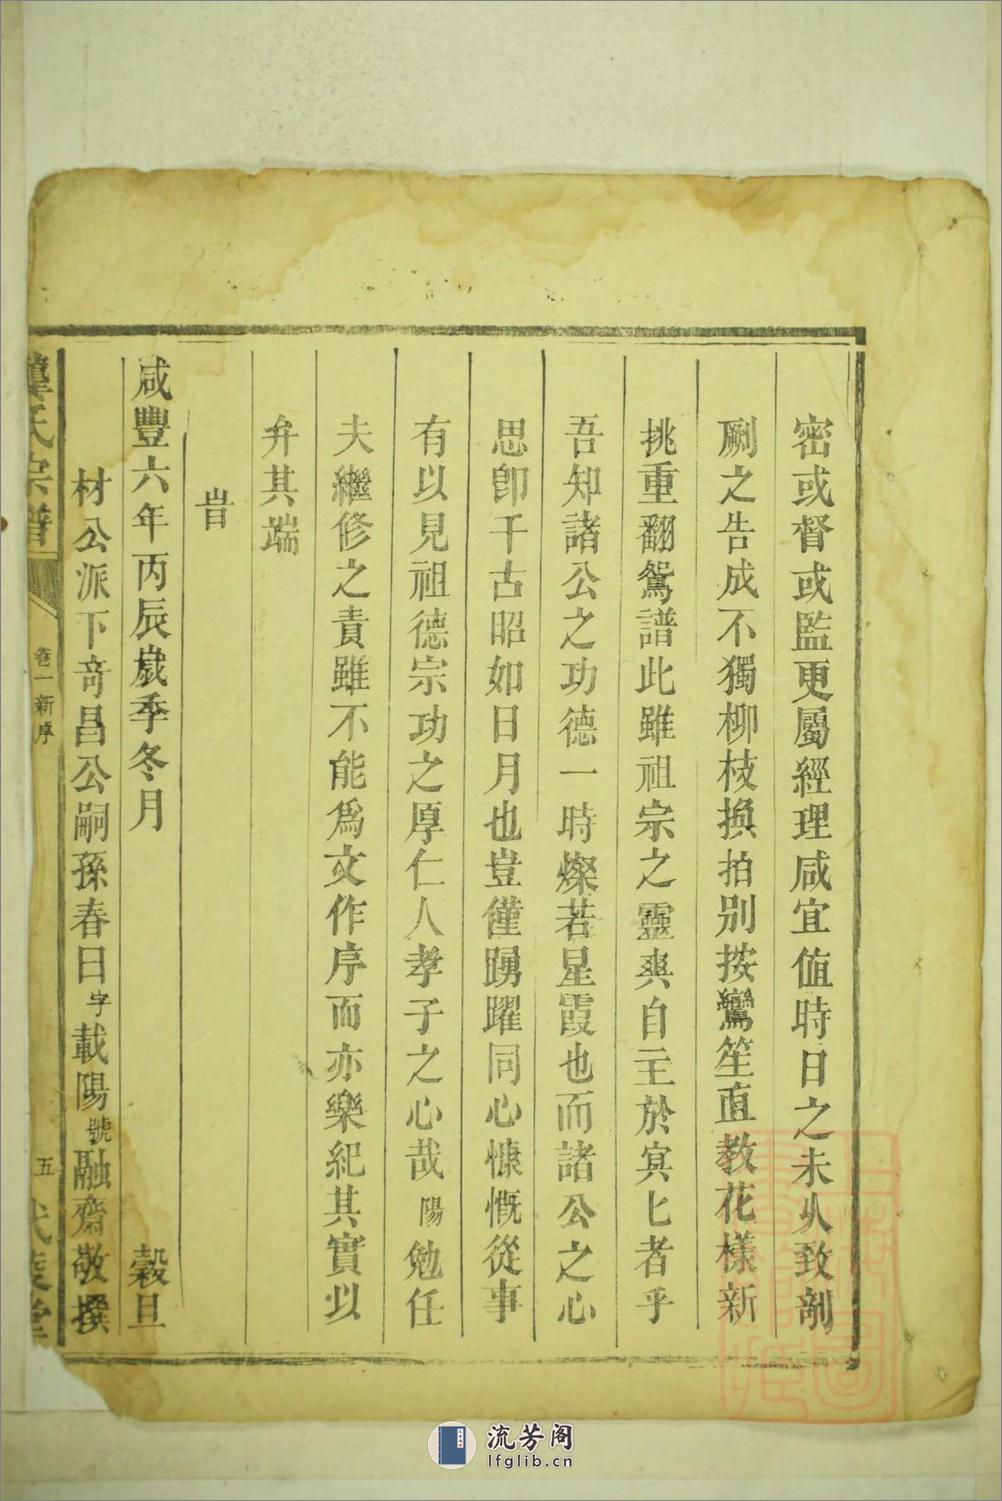 密或督或監更屬經理咸宜值時日之未乆致剞
劂之告成不獨柳枝換拍別按鸞笙直教花樣新
挑重翻鴛譜此雖祖宗之靈爽自主於㝠匕者乎
吾知諸公之功德一時燦若星霞也而諸公之心
思卽千古昭如日月也豈僅踴躍同心慷慨從事
有以見祖德宗功之厚仁人孝子之心哉陽勉任
夫繼修之責雖不能爲文作序而亦樂紀其實以
弁其端
旹
咸豐六年丙辰歲季冬月 穀旦
材公派下奇昌公嗣孫春日字載陽號融齋敬撰
龔氏宗譜 卷一新序 五
流芳阁
lfglib.cn